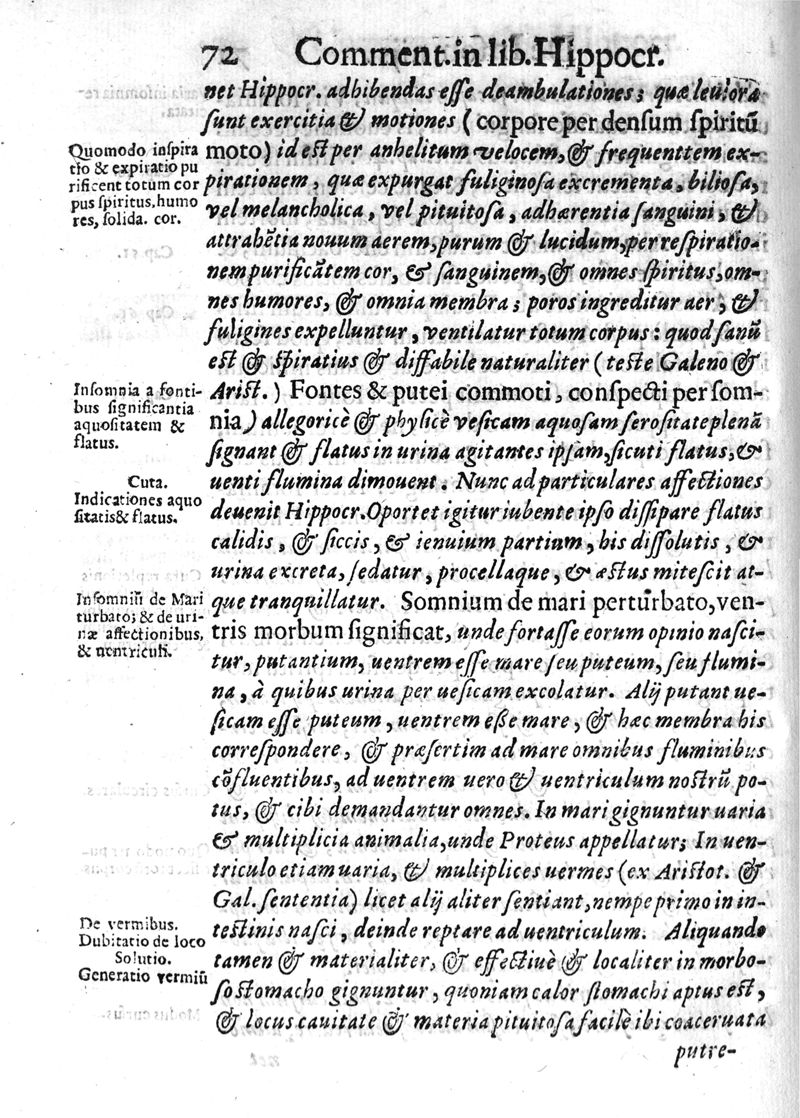 72 Comment. in lib. Hippocr.
net Hippocr. adhibendas esse deambulationes; quæ leuiora
sunt exercitia & motiones (corpore per densum spiritū
Quomodo inspira
tio & expiratio pu
rificent totum cor
pus spiritus, humo
res, solida. cor.
moto) id est per anhelitum velocem, & frequenttem ex-
pirationem, quæ expurgat fuliginosa excrementa, biliosa,
vel melancholica, vel pituitosa, adhærentia sanguini, &
attrahētia nouum aerem, purum & lucidum, per respiratio-
nem purificātem cor, & sanguinem, & omnes spiritus, om-
nes humores, & omnia membra; poros ingreditur aer, &
fuligines expelluntur, ventilatur totum corpus: quod sanū
est & spiratius & diffabile naturaliter (teste Galeno &
Insomnia a fonti-
bus significantia
aquositatem &
flatus.
Arist.) Fontes & putei commoti, conspecti per som-
nia) allegoricè & physicè vesicam aquosam serositate plenā
signant & flatus in urina agitantes ipsam, sicuti flatus, &
uenti flumina dimouent. Nunc ad particulares affectiones
Cuta.
Indicationes aquo
sitatis & flatus.
deuenit Hippocr. Oportet igitur iubente ipso dissipare flatus
calidis, & siccis, & ienuium partium, his dissolutis, &
urina excreta, sedatur, procellaque, & æstus mitescit at-
Insomniū de Mari
turbato; & de uri-
næ affectionibus,
& uentriculi.
que tranquillatur. Somnium de mari perturbato, ven-
tris morbum significat, unde fortasse eorum opinio nasci-
tur, putantium, uentrem esse mare seu puteum, seu flumi-
na, à quibus urina per uesicam excolatur. Alij putant ue-
sicam esse puteum, uentrem eße mare, & hæc membra his
correspondere, & præsertim ad mare omnibus fluminibus
cōfluentibus, ad uentrem uero & uentriculum nostrū po-
tus, & cibi demandantur omnes. In mari gignuntur uaria
& multiplicia animalia, unde Proteus appellatur; In uen-
triculo etiam uaria, & multiplices uermes (ex Aristot. &
Gal. sententia) licet alij aliter sentiant, nempe primo in in-
De vermibus.
Dubitatio de loco
Solutio.
Generatio vermiū
testinis nasci, deinde reptare ad uentriculum. Aliquando
tamen & materialiter, & effectiuè & localiter in morbo-
so stomacho gignuntur, quoniam calor stomachi aptus est,
& locus cauitate & materia pituitosa facilè ibi coaceruata
putre-